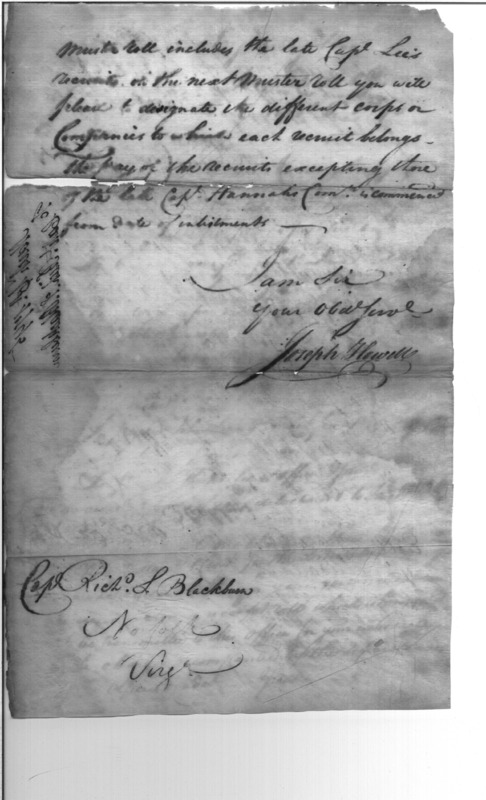 Muster roll includes the late Capt. Lee's
recruits. on the next Muster roll you will
please to designate the different corps or
Companies to which each recruit belongs -
The pay of the recruits excepting those
of the late Capt. Hannahs Comy. is commenced
from date of inlistments —
I am Sir
Your Obdt Servt
Joseph Howell
Capt Richd. S. Blackburn
Virga